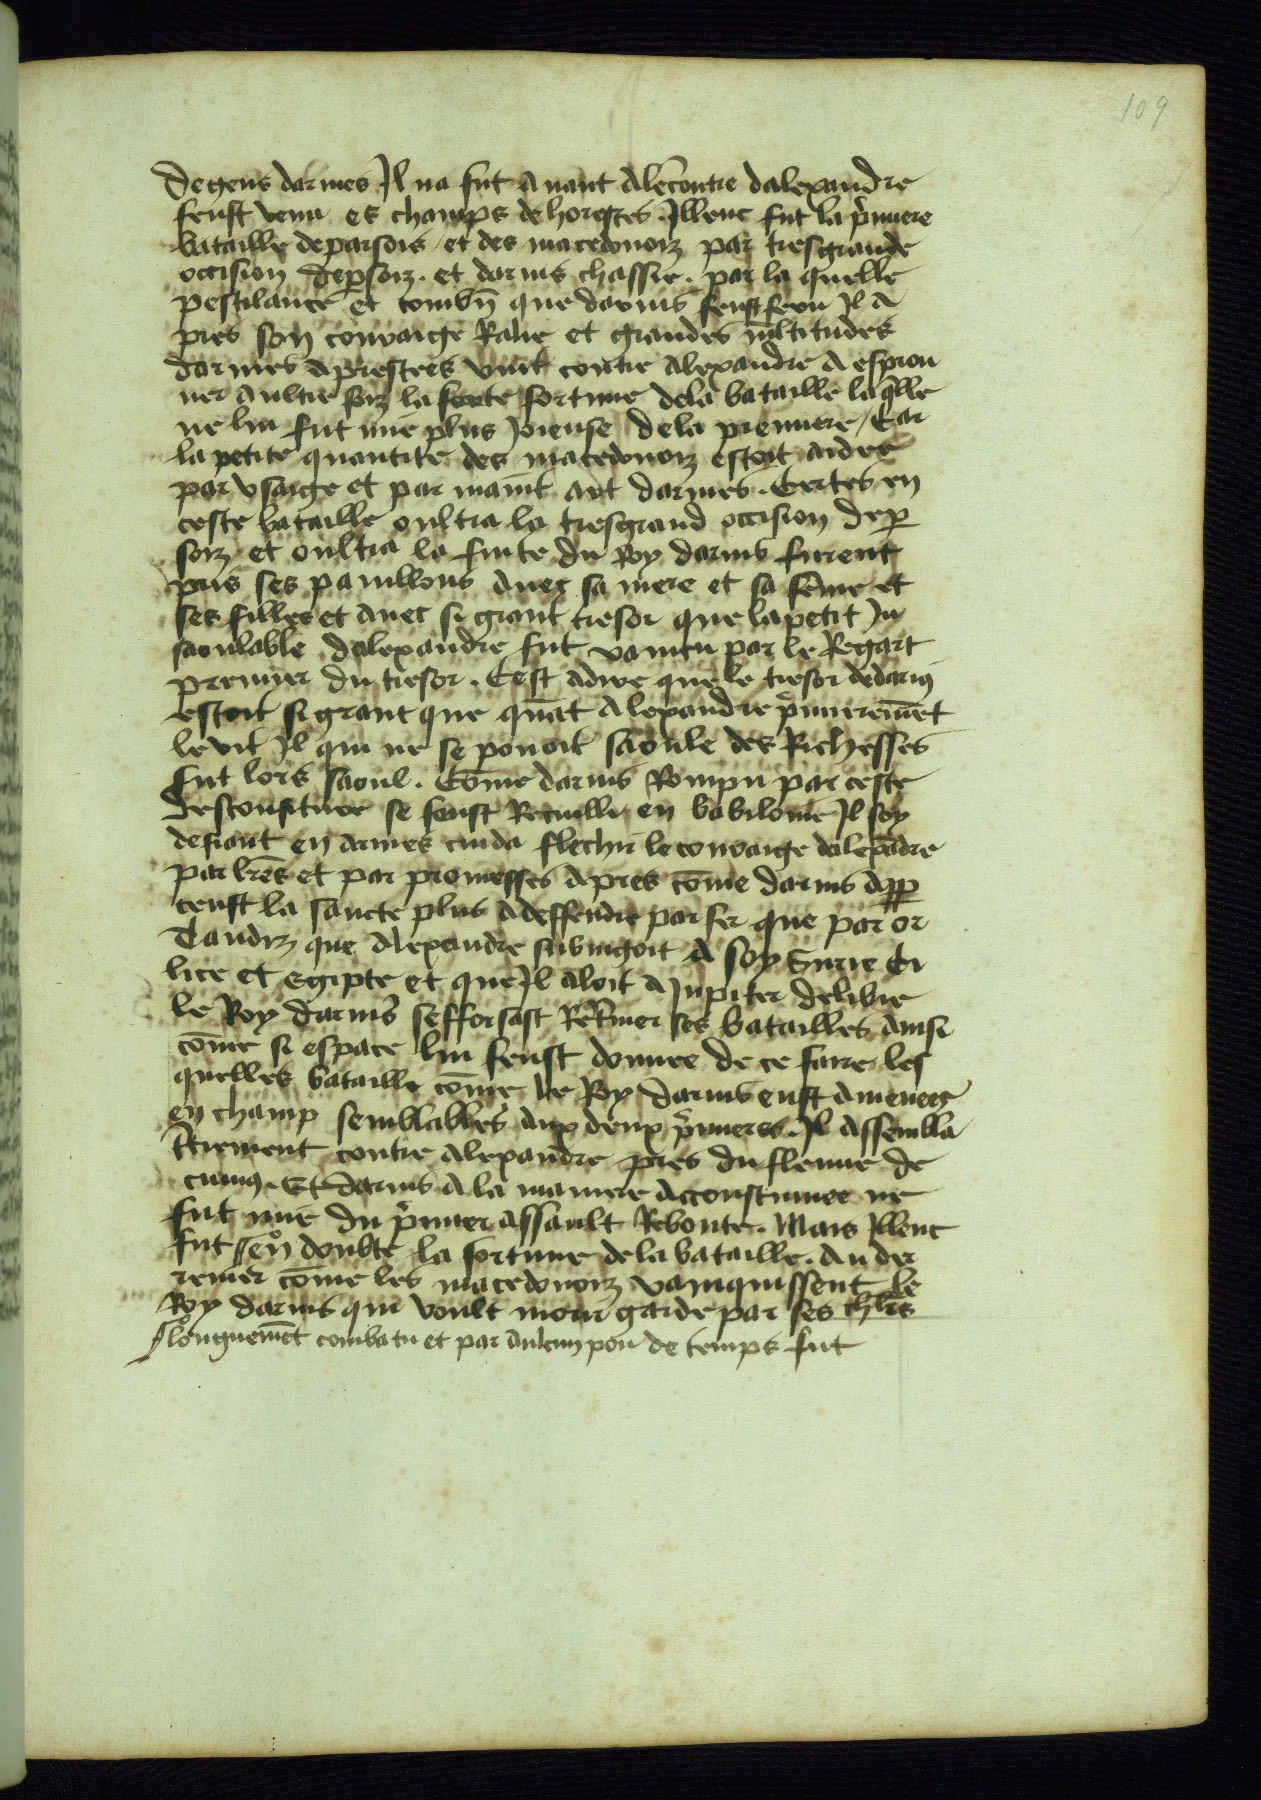 109
De gens darmes Il na fut Avant Alēcontre dalexandre
feust venu es champs de horestes. Illeuc fut la p̄miere
bataille de parsois et des macedonoiz par tresgrande
occision de ꝑsoiz. et darius chassie. par la quelle
pestilance et combn̄ que darius feust feru Il A
pres son couraige Ralie et grandes multitudes
darmes Aprestees vint contre Alexandre A esprou
ver Aultre foiz la forte fortune dela bataille laq̄lle
ne lui fut mie plus joieuse dela premiere / Car
la petite quantite des macedonoiz estoit aidee
par vsaige et par maint Art darmes. Certes en
ceste bataille oultra la tresgrand occision de ꝑ
soiz et oultra la fuite du Roy darius furent
pris ses pavillons Avec sa mere et sa fēme et
ses filles et Avec si grant tresor que lapetit In
saoulable dalexandre fut vaincu par le Regart
premier du tresor. Cest Adire que le tresor dedarius
estoit si grant que quāt Alexandre p̄mieremēt
le vit Il qui ne se povoit saoule des Richesses
fut lors saoul. Cōme darius Rompu par ceste
desconfiture se feust Recuilli en babilonie Il soy
defiant en Armes cuida flechir le couraige dalexādre
par lr̄es et par promesses Apres cōme darius Apꝑ
ceust la sancte plus Adeffendre par fer que par or
Tandiz que Alexandre subiugoit A soy Surie Ci
lice et Egipte et que Il aloit A Jupiter de libie
le Roy darius sefforsast Refermer ses batailles Ainsi
cōme si espace lui feust donnee de ce faire les
quelles bataille cōme le Roy darius eust Amenees
en champ semblables aux deux p̄miers. Il Assembla
tierement contre Alexandre pres du fleuve de
cumus. Et darius A la maniere Accoustumee ne
fut mie du p̄mier Assault Reboute. Mais Illeuc
fut en doubte la fortune dela bataille. Au der
renier cōme les macedonoiz vainquissent le
Roy darius qui voult mourir garde par ses chl̄rs
longuemēt combatu et par Aulcun pou de temps fut